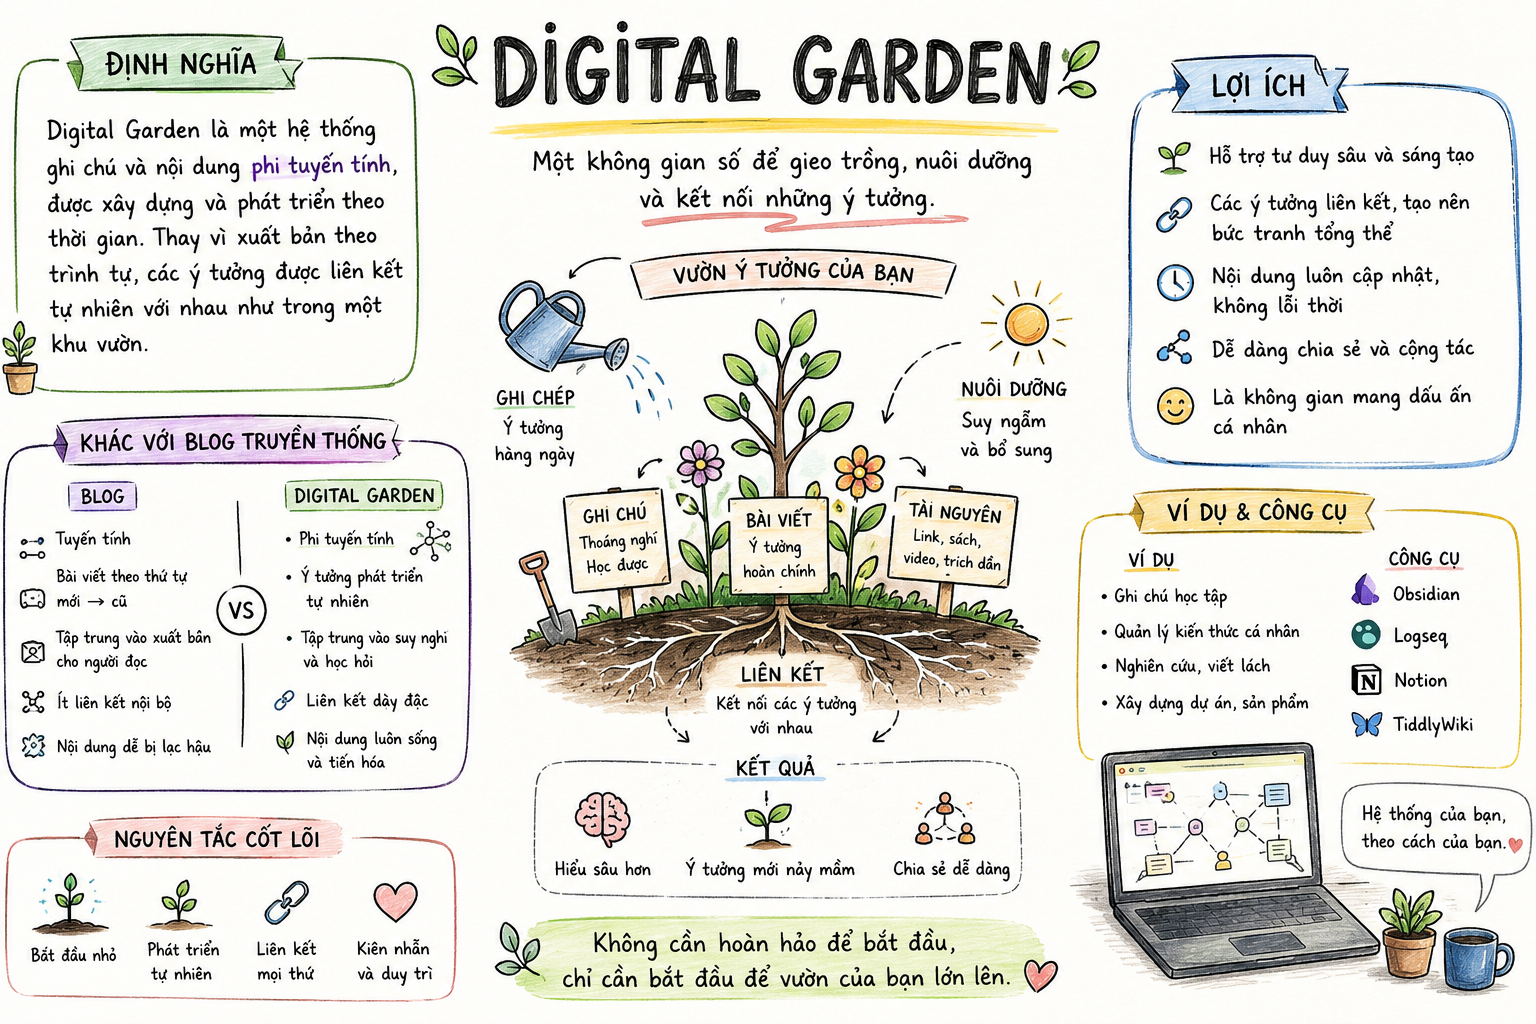 DIGITAL GARDEN
Một không gian số để gieo trồng, nuôi dưỡng
và kết nối những ý tưởng.
ĐỊNH NGHĨA
Digital Garden là một hệ thống
ghi chú và nội dung phi tuyến tính,
được xây dựng và phát triển theo
thời gian. Thay vì xuất bản theo
trình tự, các ý tưởng được liên kết
tự nhiên với nhau như trong một
khu vườn.
KHÁC VỚI BLOG TRUYỀN THỐNG
BLOG
Tuyến tính
Bài viết theo thứ tự
mới → cũ
Tập trung vào xuất bản
cho người đọc
Ít liên kết nội bộ
Nội dung dễ bị lạc hậu
VS
DIGITAL GARDEN
• Phi tuyến tính
• Ý tưởng phát triển
tự nhiên
• Tập trung vào suy nghĩ
và học hỏi
Liên kết dày đặc
Nội dung luôn sống
và tiến hóa
NGUYÊN TẮC CỐT LÕI
Bắt đầu nhỏ
Phát triển
tự nhiên
Liên kết
mọi thứ
Kiên nhẫn
và duy trì
VƯỜN Ý TƯỞNG CỦA BẠN
GHI CHÉP
Ý tưởng
hàng ngày
NUÔI DƯỠNG
Suy ngẫm
và bổ sung
GHI CHÚ
Thoáng nghĩ
Học được
BÀI VIẾT
Ý tưởng
hoàn chỉnh
TÀI NGUYÊN
Link, sách,
video, trích dẫn
LIÊN KẾT
Kết nối các ý tưởng
với nhau
KẾT QUẢ
Hiểu sâu hơn
Ý tưởng mới nảy mầm
Chia sẻ dễ dàng
Không cần hoàn hảo để bắt đầu,
chỉ cần bắt đầu để vườn của bạn lớn lên.
LỢI ÍCH
Hỗ trợ tư duy sâu và sáng tạo
Các ý tưởng liên kết, tạo nên
bức tranh tổng thể
Nội dung luôn cập nhật,
không lỗi thời
Dễ dàng chia sẻ và cộng tác
Là không gian mang dấu ấn
cá nhân
VÍ DỤ & CÔNG CỤ
VÍ DỤ
• Ghi chú học tập
• Quản lý kiến thức cá nhân
• Nghiên cứu, viết lách
• Xây dựng dự án, sản phẩm
CÔNG CỤ
Obsidian
Logseq
N Notion
TiddlyWiki
Hệ thống của bạn,
theo cách của bạn.